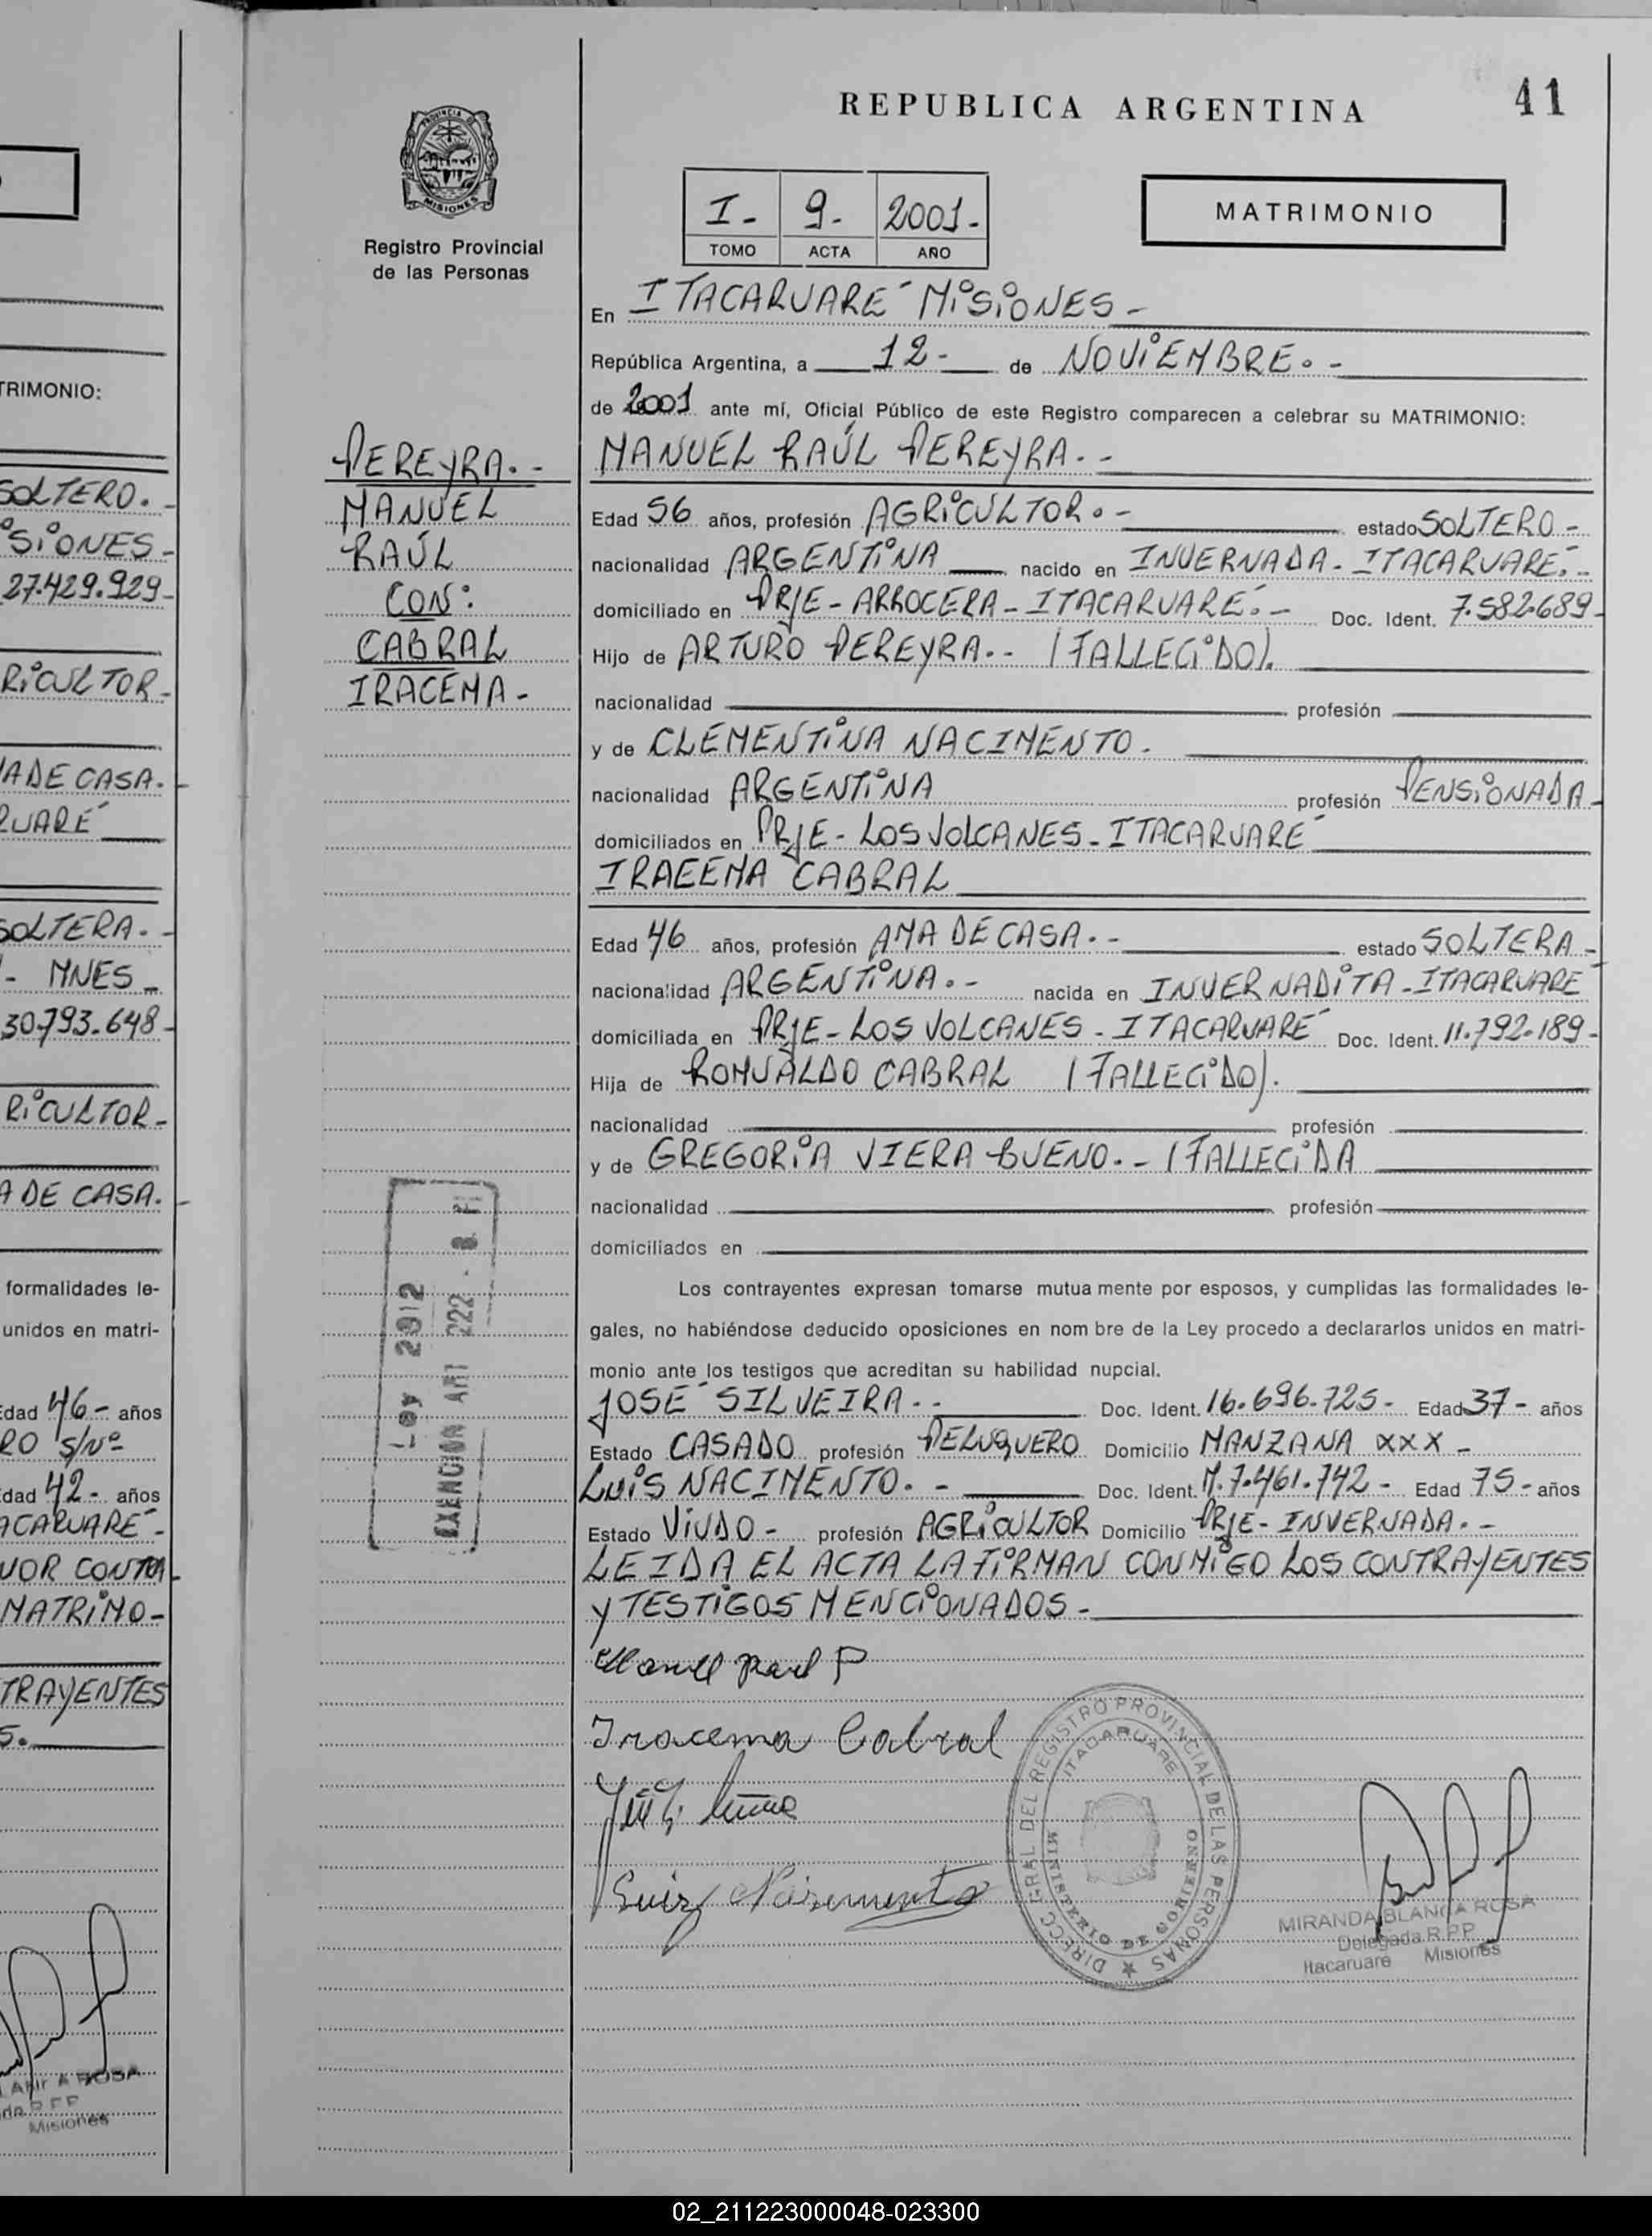 TRIMONIO:
SOLTERO.-
SIONES-
27.429.929-
RICULTOR-
A DE CASA.-
RUARÉ
SOLTERA.-
- MNES-
30.793.648-
RICULTOR-
A DE CASA.-
formalidades le-
unidos en matri-
Edad 46- años
RO S/Nº
dad 42- años
ACARUARÉ-
VOR CONTRA
MATRIMO-
TRAYENTES
S.
Misiones
41
REPUBLICA ARGENTINA
PROVINCIA DE
MISIONES
Registro Provincial
de las Personas
I- 9- 2001-
TOMO ACTA AÑO
MATRIMONIO
En ITACARUARÉ MISIONES-
República Argentina, a 12- de NOVIEMBRE.-
de 2001 ante mí, Oficial Público de este Registro comparecen a celebrar su MATRIMONIO:
PEREYRA.-
MANUEL
RAÚL
CON:
CABRAL
IRACEMA-
MANUEL RAÚL PEREYRA.-
Edad 56 años, profesión AGRICULTOR.- estado SOLTERO-
nacionalidad ARGENTINA nacido en INVERNADA-ITACARUARÉ.-
domiciliado en PRJE-ARROCERA-ITACARUARÉ.- Doc. Ident. 7.582.689-
Hijo de ARTURO PEREYRA.- (FALLECIDO).
nacionalidad profesión
y de CLEMENTINA NACIMENTO.
nacionalidad ARGENTINA profesión PENSIONADA-
domiciliados en PRJE-LOS VOLCANES-ITACARUARÉ
IRACEMA CABRAL
Edad 46 años, profesión AMA DE CASA.- estado SOLTERA-
nacionalidad ARGENTINA.- nacida en INVERNADITA-ITACARUARÉ
domiciliada en PRJE-LOS VOLCANES-ITACARUARÉ Doc. Ident. 11.792.189-
Hija de ROMUALDO CABRAL (FALLECIDO).
nacionalidad profesión
y de GREGORIA VIERA BUENO.- (FALLECIDA
nacionalidad profesión
domiciliados en
Ley 2912
EXENCION ART 222
Los contrayentes expresan tomarse mutua mente por esposos, y cumplidas las formalidades le-
gales, no habiéndose deducido oposiciones en nom bre de la Ley procedo a declararlos unidos en matri-
monio ante los testigos que acreditan su habilidad nupcial.
JOSÉ SILVEIRA.- Doc. Ident. 16.696.725- Edad 37- años
Estado CASADO profesión PELUQUERO Domicilio MANZANA XXX-
LUIS NACIMENTO.- Doc. Ident. M.7.461.742- Edad 75- años
Estado VIUDO- profesión AGRICULTOR Domicilio PRJE-INVERNADA.-
LEIDA EL ACTA LA FIRMAN CONMIGO LOS CONTRAYENTES
Y TESTIGOS MENCIONADOS-
Manuel Raul P
Iracema Cabral
Luiz Nasimento
DIRECC GRAL DEL REGISTRO PROVINCIAL DE LAS PERSONAS
ITACARUARE
MINISTERIO DE GOBIERNO
MIRANDA BLANCA ROSA
Delegada R.P.P.
Itacaruare Misiones
02_211223000048-023300